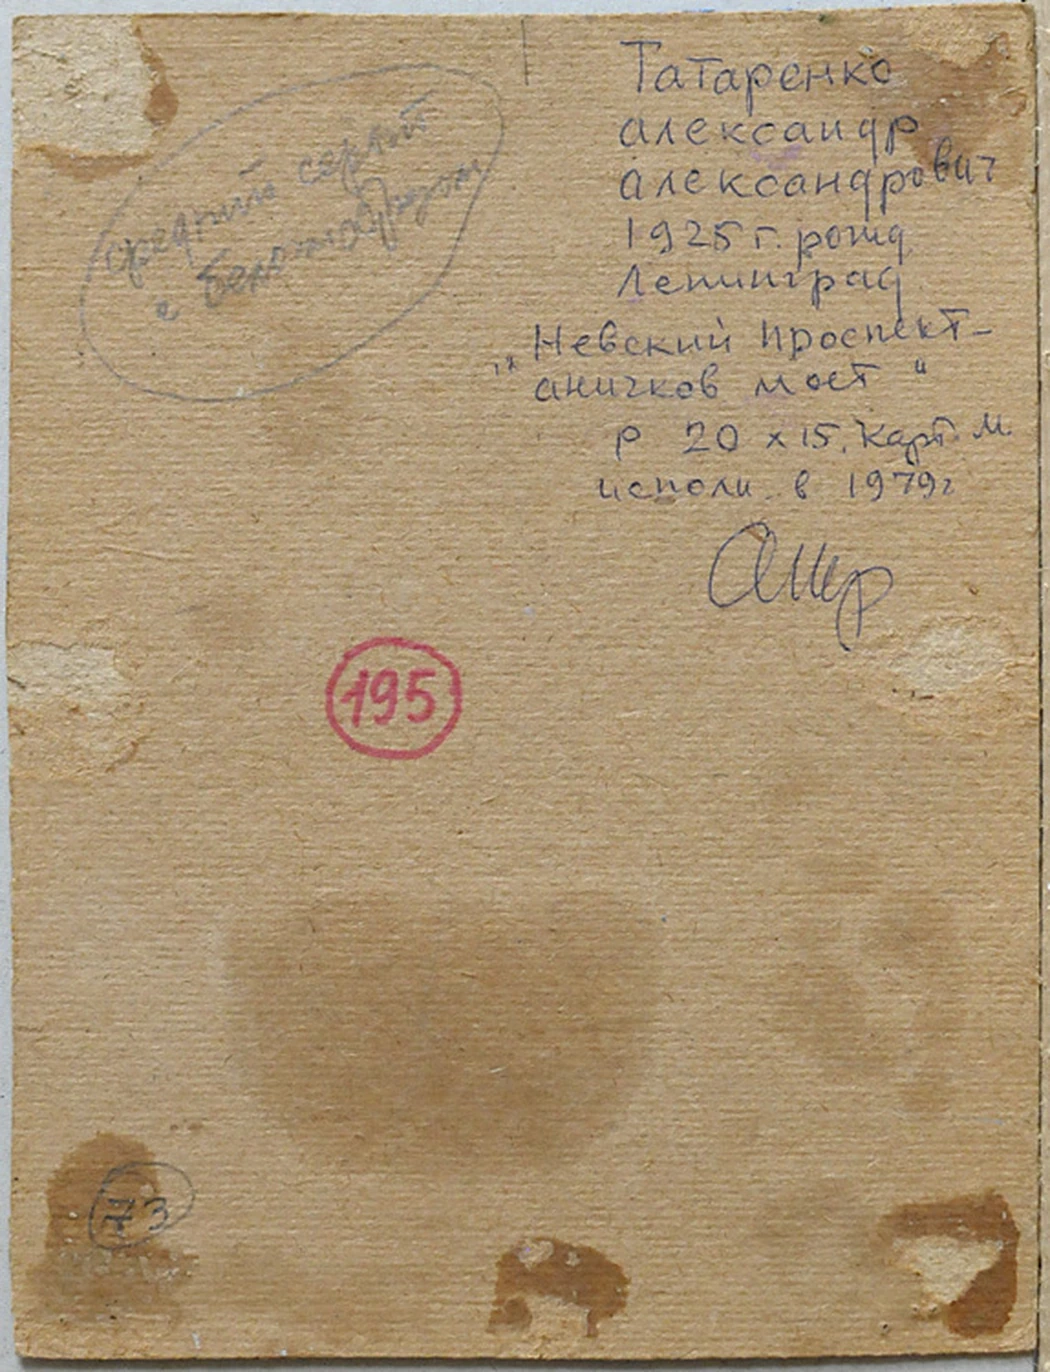 Татаренко
александр
александрович
1925 г. рожд
Ленинград
"Невский проспект-
аничков мост"
р 20 х 15. карт. м.
исполн. в 1979г
средний серый
с
195
73